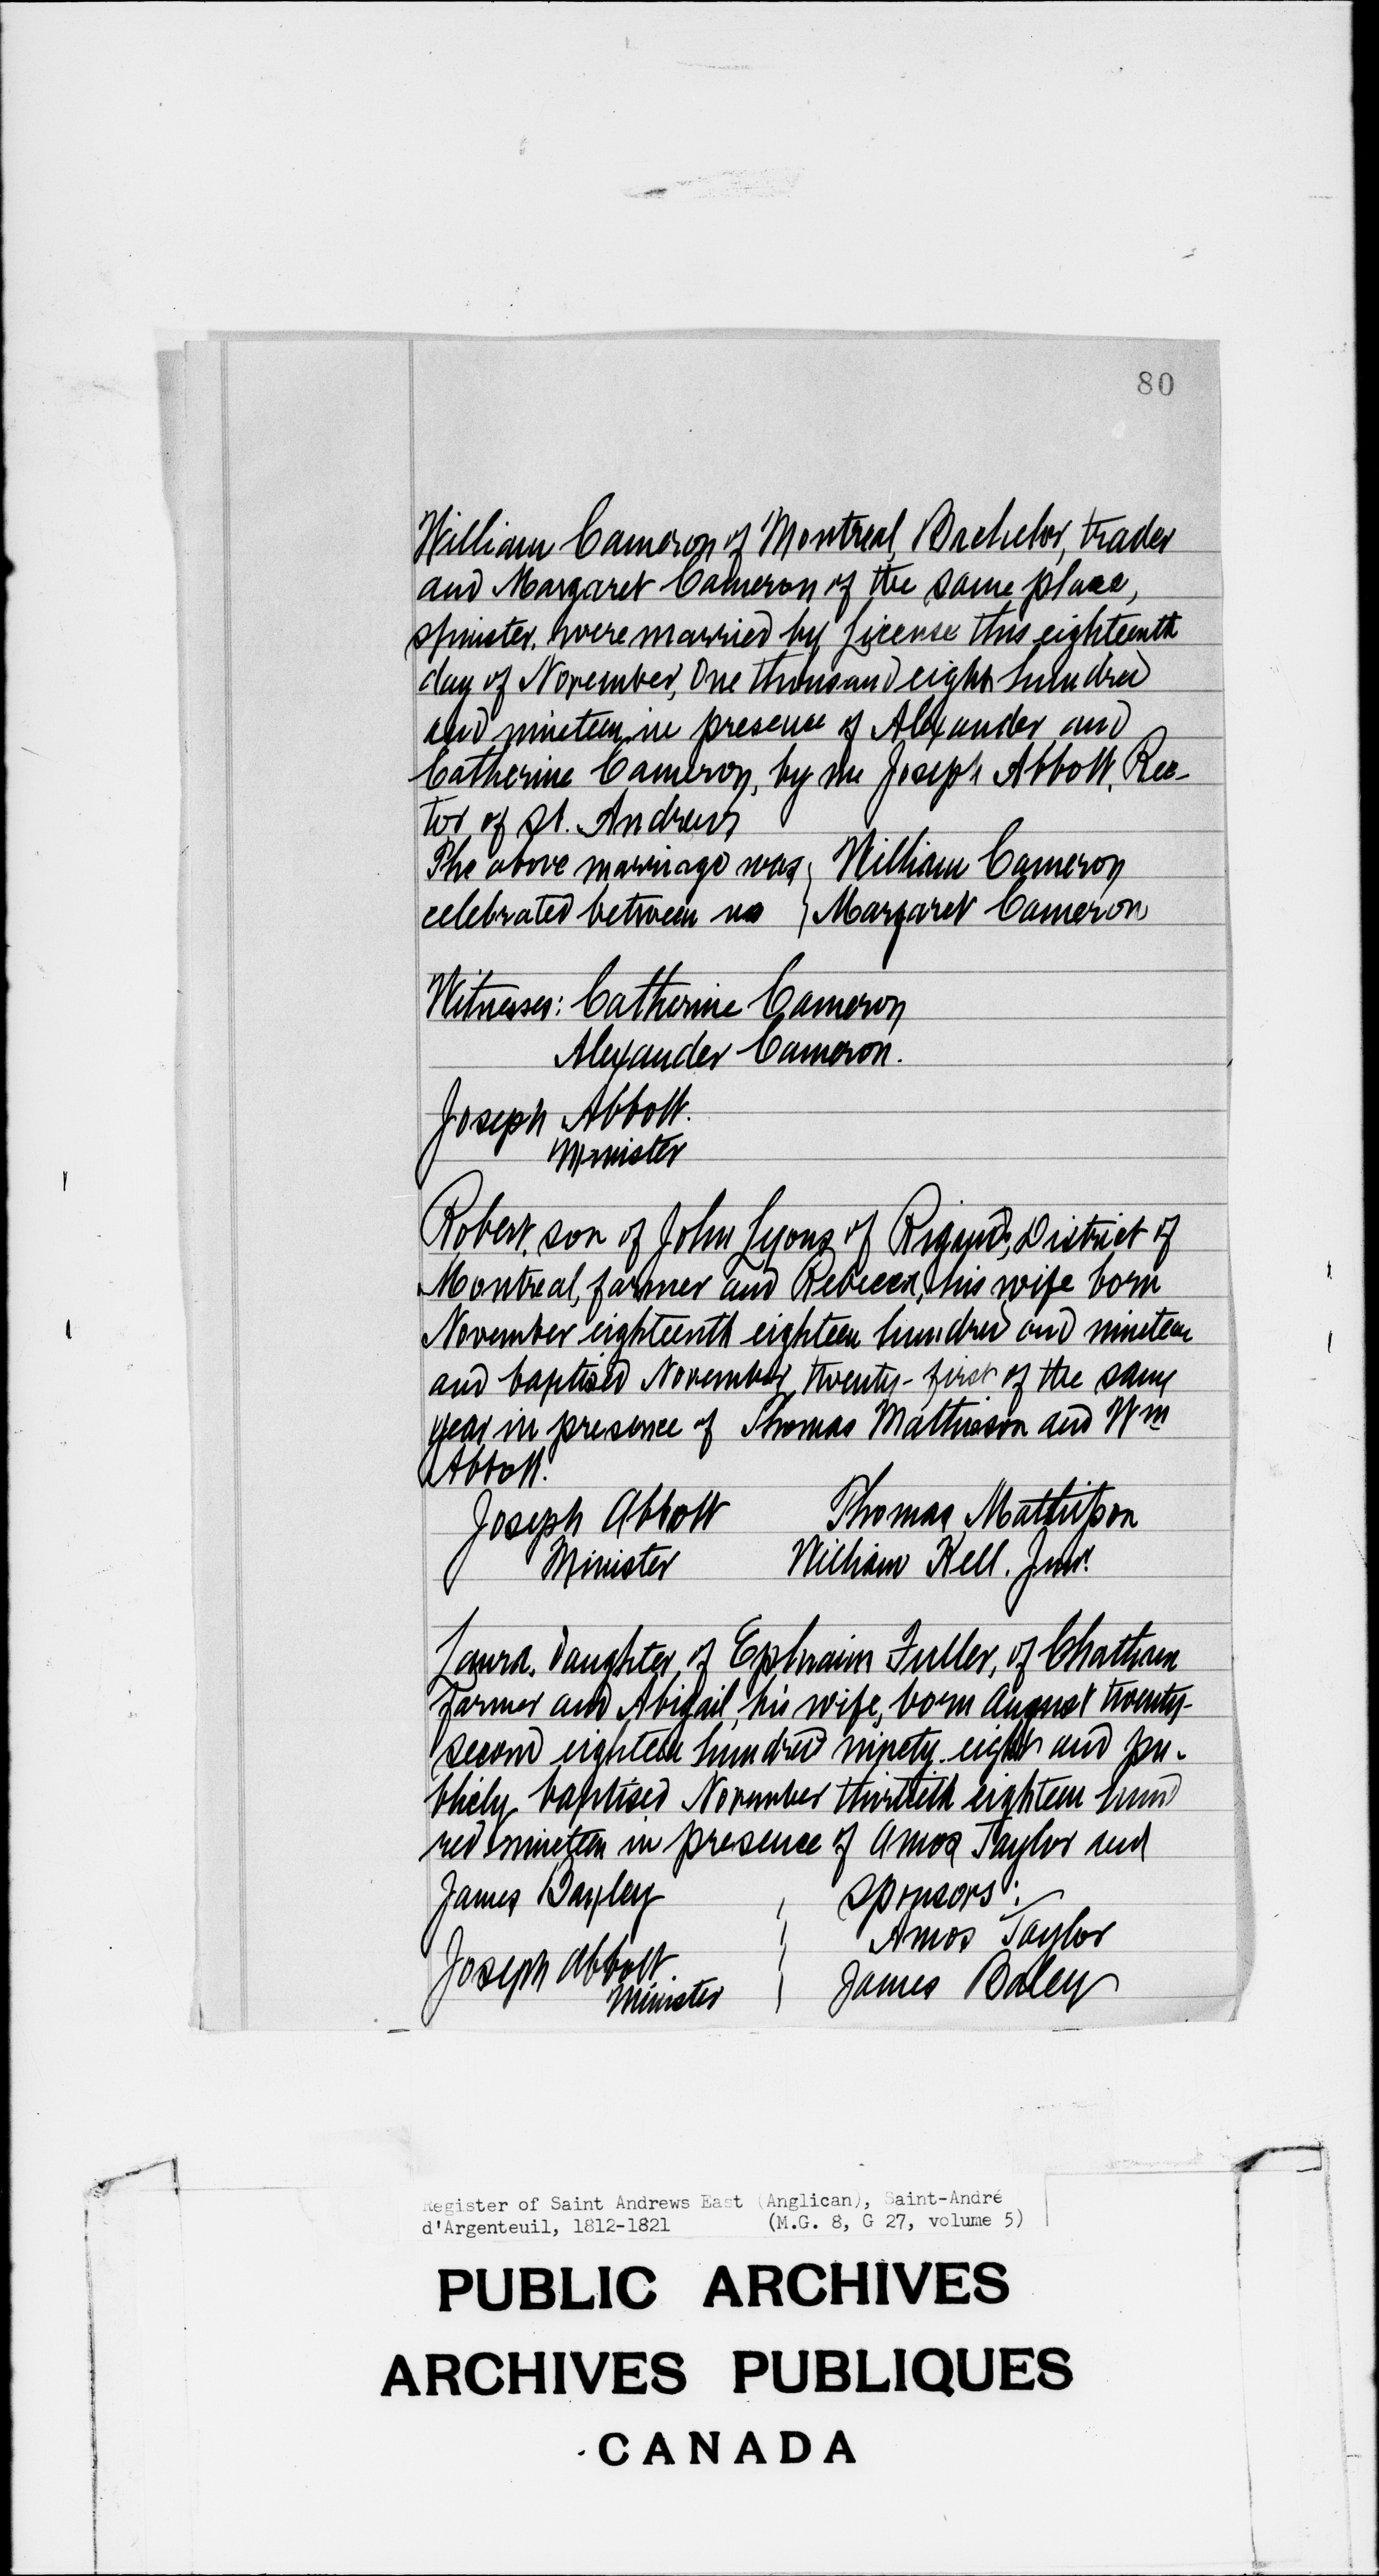 80
William Cameron of Montreal, Bachelor, trader
and Margaret Cameron of the same place,
spinster, were married by License this eighteenth
day of November, One thousand eight hundred
and nineteen in presence of Alexander and
Catherine Cameron, by me Joseph Abbott, Rec-
tor of St. Andrews
The above marriage was } William Cameron
celebrated between us } Margaret Cameron
Witnesses: Catherine Cameron
Alexander Cameron.
Joseph Abbott.
Minister
Robert, son of John Lyons of Rigaud, District of
Montreal, farmer and Rebecca, his wife born
November eighteenth eighteen hundred and nineteen
and baptised November twenty-first of the same
year in presence of Thomas Mathieson and Wm
Abbott.
Joseph Abbott Thomas Mathieson
Minister William Kell. Junr.
Laura, daughter of Ephraim Fuller, of Chatham
farmer and Abigail, his wife, born August twenty-
second eighteen hundred ninety-eight and pu-
blicly baptised November thirtieth eighteen hund
red nineteen in presence of Amos Taylor and
James Bayley Sponsors:
Amos Taylor
Joseph Abbott.
Minister James Baley
Register of Saint Andrews East (Anglican), Saint-André
d'Argenteuil, 1812-1821 (M.G. 8, G 27, volume 5)
PUBLIC ARCHIVES
ARCHIVES PUBLIQUES
CANADA